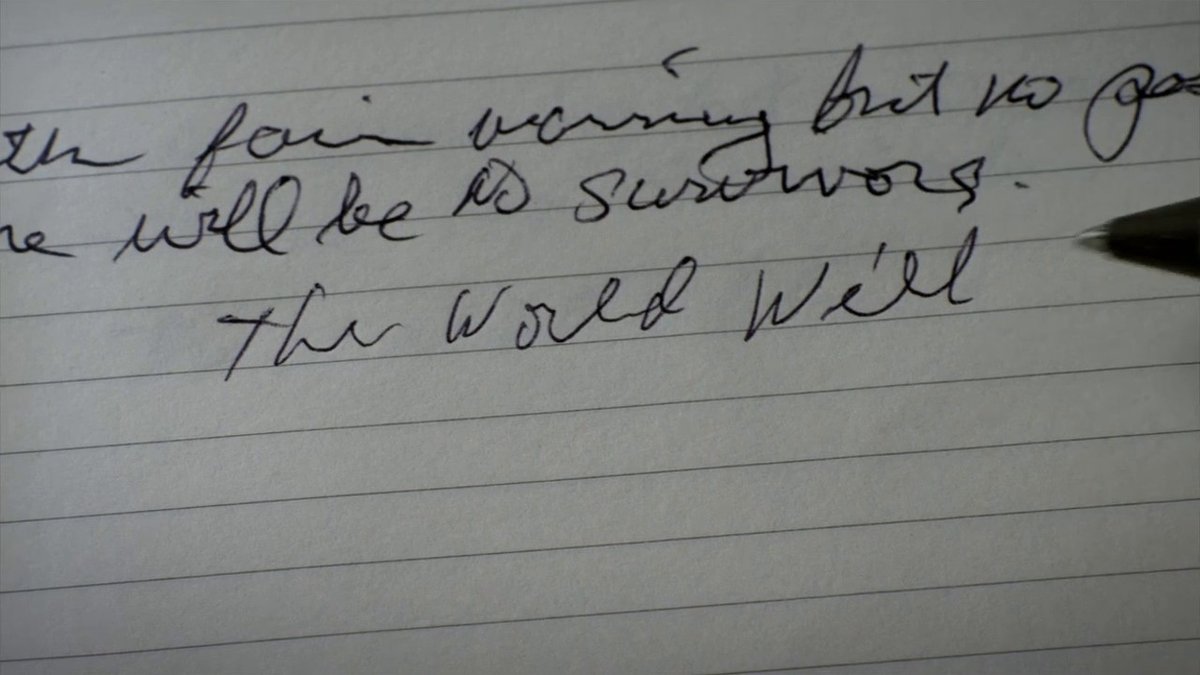 fair warning but no
will be no survivors.
The World Will